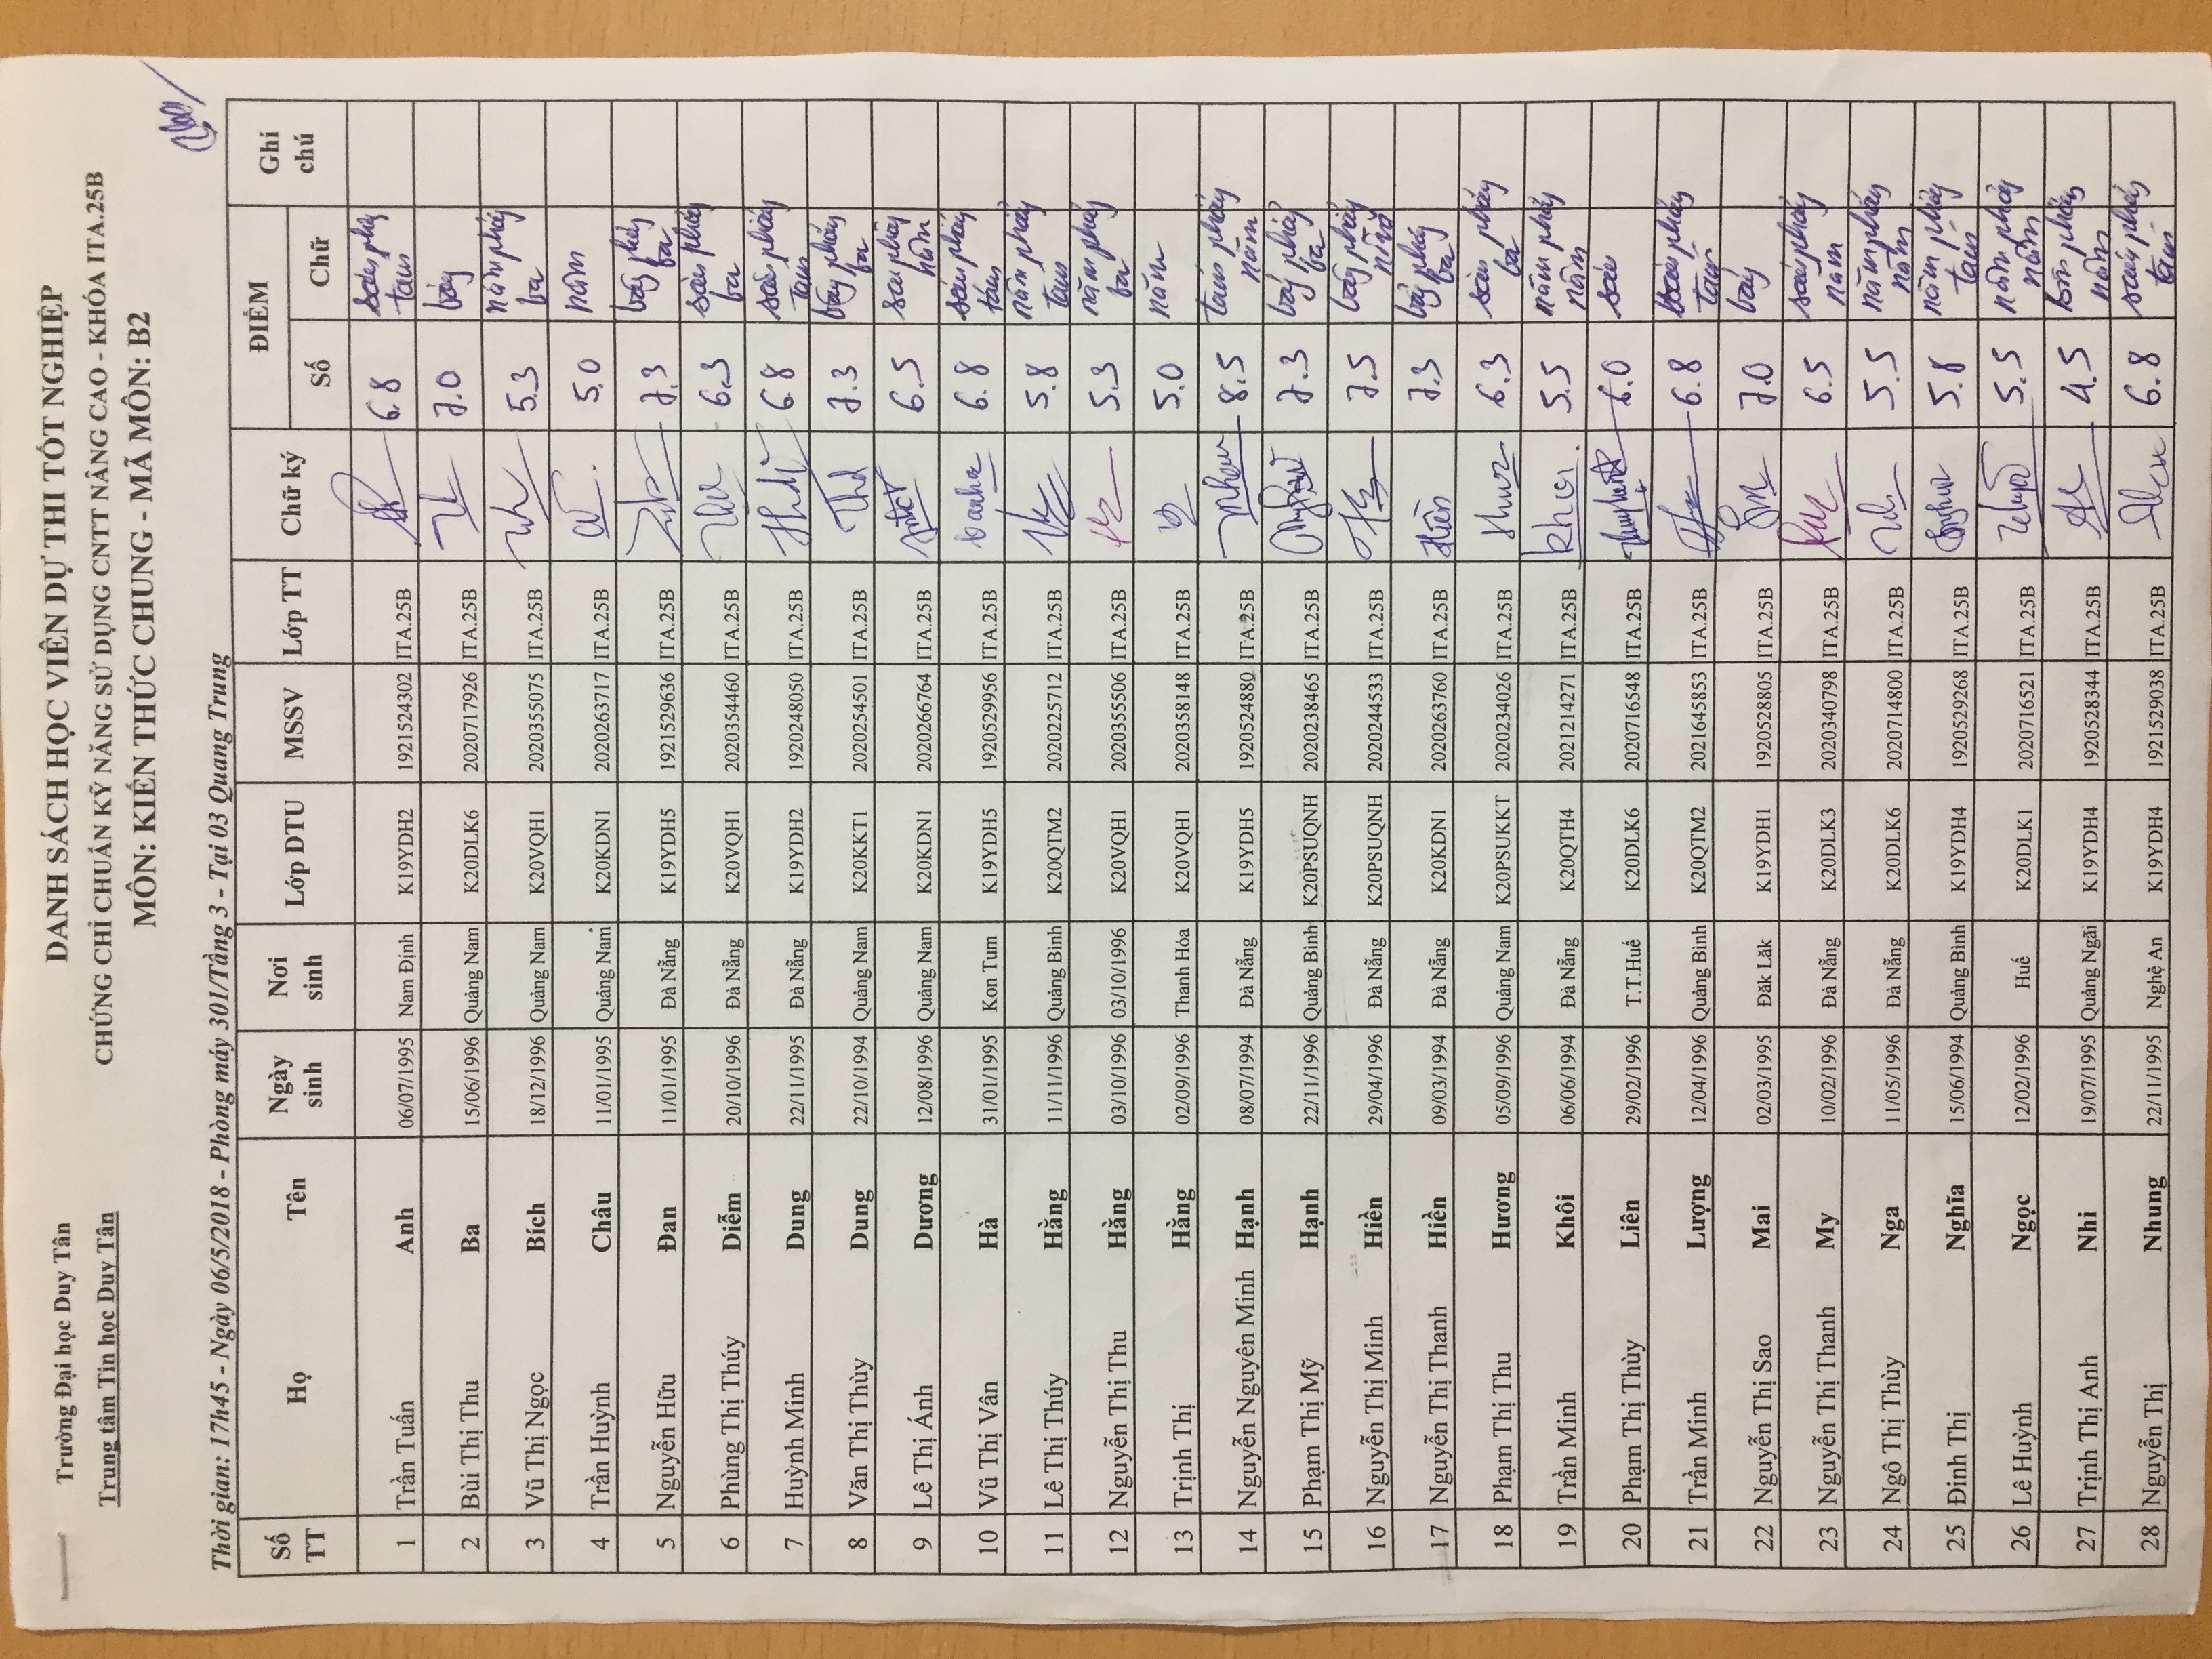 Trường Đại học Duy Tân
Trung tâm Tin học Duy Tân
DANH SÁCH HỌC VIÊN DỰ THI TỐT NGHIỆP
CHỨNG CHỈ CHUẨN KỸ NĂNG SỬ DỤNG CNTT NÂNG CAO - KHÓA ITA.25B
MÔN: KIẾN THỨC CHUNG - MÃ MÔN: B2
Thời gian: 17h45 - Ngày 06/5/2018 - Phòng máy 301/Tầng 3 - Tại 03 Quang Trung
Số TT Họ Tên Ngày sinh Nơi sinh Lớp DTU MSSV Lớp TT Chữ ký ĐIỂM Ghi chú
Số Chữ
1 Trần Tuấn Anh 06/07/1995 Nam Định K19YDH2 1921524302 ITA.25B 6.8 sáu phẩy tám
2 Bùi Thị Thu Ba 15/06/1996 Quảng Nam K20DLK6 2020717926 ITA.25B 7.0 bảy
3 Vũ Thị Ngọc Bích 18/12/1996 Quảng Nam K20VQH1 2020355075 ITA.25B 5.3 năm phẩy ba
4 Trần Huỳnh Châu 11/01/1995 Quảng Nam K20KDN1 2020263717 ITA.25B 5.0 năm
5 Nguyễn Hữu Đan 11/01/1995 Đà Nẵng K19YDH5 1921529636 ITA.25B 7.3 bảy phẩy ba
6 Phùng Thị Thúy Diễm 20/10/1996 Đà Nẵng K20VQH1 2020354460 ITA.25B 6.3 sáu phẩy ba
7 Huỳnh Minh Dung 22/11/1995 Đà Nẵng K19YDH2 1920248050 ITA.25B 6.8 sáu phẩy tám
8 Văn Thị Thùy Dung 22/10/1994 Quảng Nam K20KKT1 2020254501 ITA.25B 7.3 bảy phẩy ba
9 Lê Thị Ánh Dương 12/08/1996 Quảng Nam K20KDN1 2020266764 ITA.25B 6.5 sáu phẩy năm
10 Vũ Thị Vân Hà 31/01/1995 Kon Tum K19YDH5 1920529956 ITA.25B 6.8 sáu phẩy tám
11 Lê Thị Thúy Hằng 11/11/1996 Quảng Bình K20QTM2 2020225712 ITA.25B 5.8 năm phẩy tám
12 Nguyễn Thị Thu Hằng 03/10/1996 03/10/1996 K20VQH1 2020355506 ITA.25B 5.3 năm phẩy ba
13 Trịnh Thị Hằng 02/09/1996 Thanh Hóa K20VQH1 2020358148 ITA.25B 5.0 năm
14 Nguyễn Nguyên Minh Hạnh 08/07/1994 Đà Nẵng K19YDH5 1920524880 ITA.25B 8.5 tám phẩy năm
15 Phạm Thị Mỹ Hạnh 22/11/1996 Quảng Bình K20PSUQNH 2020238465 ITA.25B 7.3 bảy phẩy ba
16 Nguyễn Thị Minh Hiền 29/04/1996 Đà Nẵng K20PSUQNH 2020244533 ITA.25B 7.5 bảy phẩy năm
17 Nguyễn Thị Thanh Hiền 09/03/1994 Đà Nẵng K20KDN1 2020263760 ITA.25B Hiền 7.3 bảy phẩy ba
18 Phạm Thị Thu Hương 05/09/1996 Quảng Nam K20PSUKKT 2020234026 ITA.25B 6.3 sáu phẩy ba
19 Trần Minh Khôi 06/06/1994 Đà Nẵng K20QTH4 2021214271 ITA.25B Khôi 5.5 năm phẩy năm
20 Phạm Thị Thùy Liên 29/02/1996 T.T.Huế K20DLK6 2020716548 ITA.25B 6.0 sáu
21 Trần Minh Lượng 12/04/1996 Quảng Bình K20QTM2 2021645853 ITA.25B 6.8 sáu phẩy tám
22 Nguyễn Thị Sao Mai 02/03/1995 Đăk Lăk K19YDH1 1920528805 ITA.25B 7.0 bảy
23 Nguyễn Thị Thanh My 10/02/1996 Đà Nẵng K20DLK3 2020340798 ITA.25B 6.5 sáu phẩy năm
24 Ngô Thị Thùy Nga 11/05/1996 Đà Nẵng K20DLK6 2020714800 ITA.25B 5.5 năm phẩy năm
25 Đinh Thị Nghĩa 15/06/1994 Quảng Bình K19YDH4 1920529268 ITA.25B 5.8 năm phẩy tám
26 Lê Huỳnh Ngọc 12/02/1996 Huế K20DLK1 2020716521 ITA.25B 5.5 năm phẩy năm
27 Trịnh Thị Anh Nhi 19/07/1995 Quảng Ngãi K19YDH4 1920528344 ITA.25B 4.5 bốn phẩy năm
28 Nguyễn Thị Nhung 22/11/1995 Nghệ An K19YDH4 1921529038 ITA.25B 6.8 sáu phẩy tám